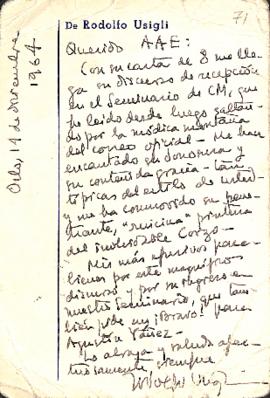 71
De Rodolfo Usigli
Oslo, 14 de diciembre
1964
Querido AAE:
Con su carta de 8 me lle-
ga su discurso de recepción
en el Seminario de CM, que
he leído desde luego
do por la módica
del correo oficial — Me han
encantado su donosura y
su contenida gracia — tan
típicas del estilo de usted —
y me ha conmovido su
pintura
del inolvidable Corzo —
Mis más efusivos para-
bienes por este magnífico
discurso y por su ingreso en
nuestro Seminario, que tam-
bién pide un ¡bravo! para
Agustín Yáñez —
Lo abraza y saluda afec-
tuosamente, siempre
Rodolfo Usigli